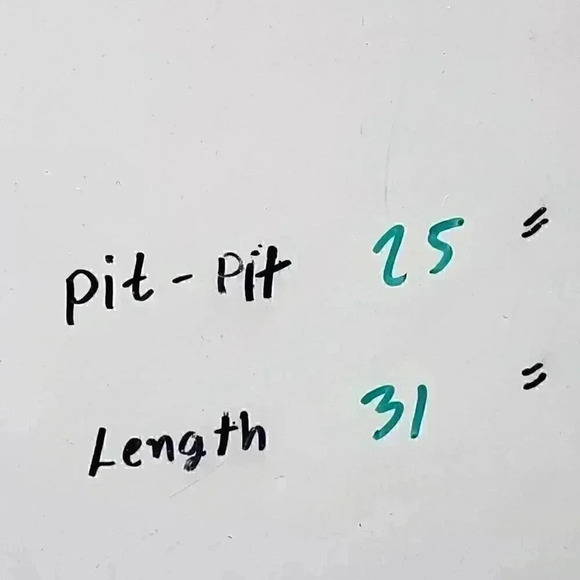 pit - pit 25 "
Length 31 "